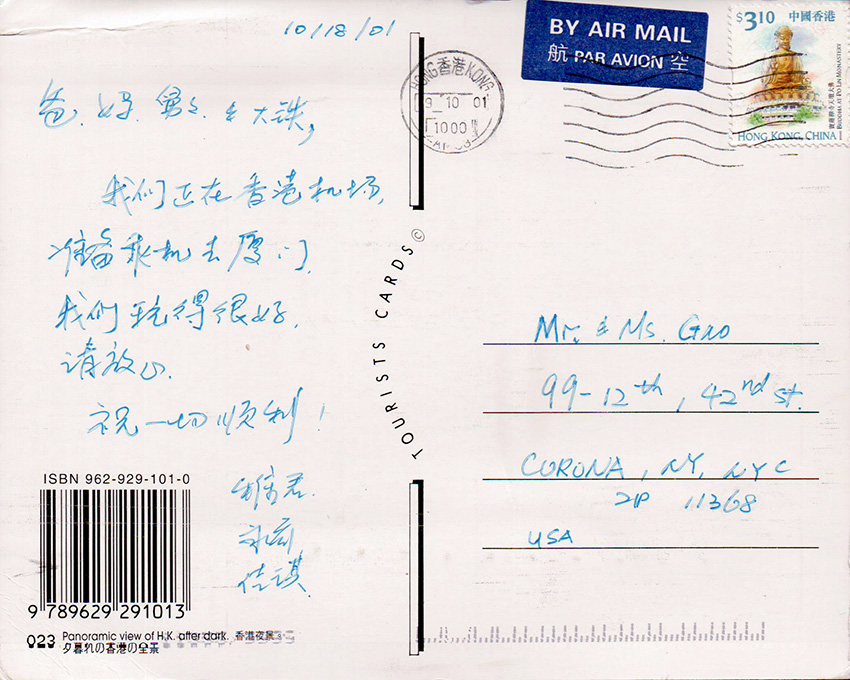 10/18/01
爸、妈、舅舅 & 大铁,
我们正在香港机场,
准备乘机去厦门.
我们玩得很好,
请放心.
祝一切顺利!
佳琪
ISBN 962-929-101-0
9 789629 291013
023 Panoramic view of H.K. after dark. 香港夜景
夕暮れの香港の全景
TOURISTS CARDS©
HONG 香港 KONG
10 01
1000
BY AIR MAIL
航 PAR AVION 空
$3.10 中國香港
寶蓮禪寺天壇大佛
BUDDHA AT PO LIN MONASTERY
HONG KONG, CHINA
Mr. & Ms. Gao
99-12th, 42nd St.
CORONA, NY, NYC
ZIP 11368
USA